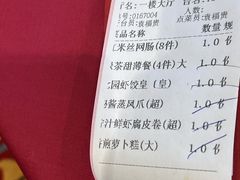 名:一楼大厅
号:0167004
人数:
台员:袁福贵
点菜员:袁福贵
品名称
数量 规
米丝网肠(8件) 1.0 份
茶甜薄餐(4件)大 1.0 份
园虾饺皇(皇) 1.0 份
酱蒸凤爪(超) 1.0 份
汁鲜虾腐皮卷(超) 1.0 份
煎萝卜糕(大) 1.0 份